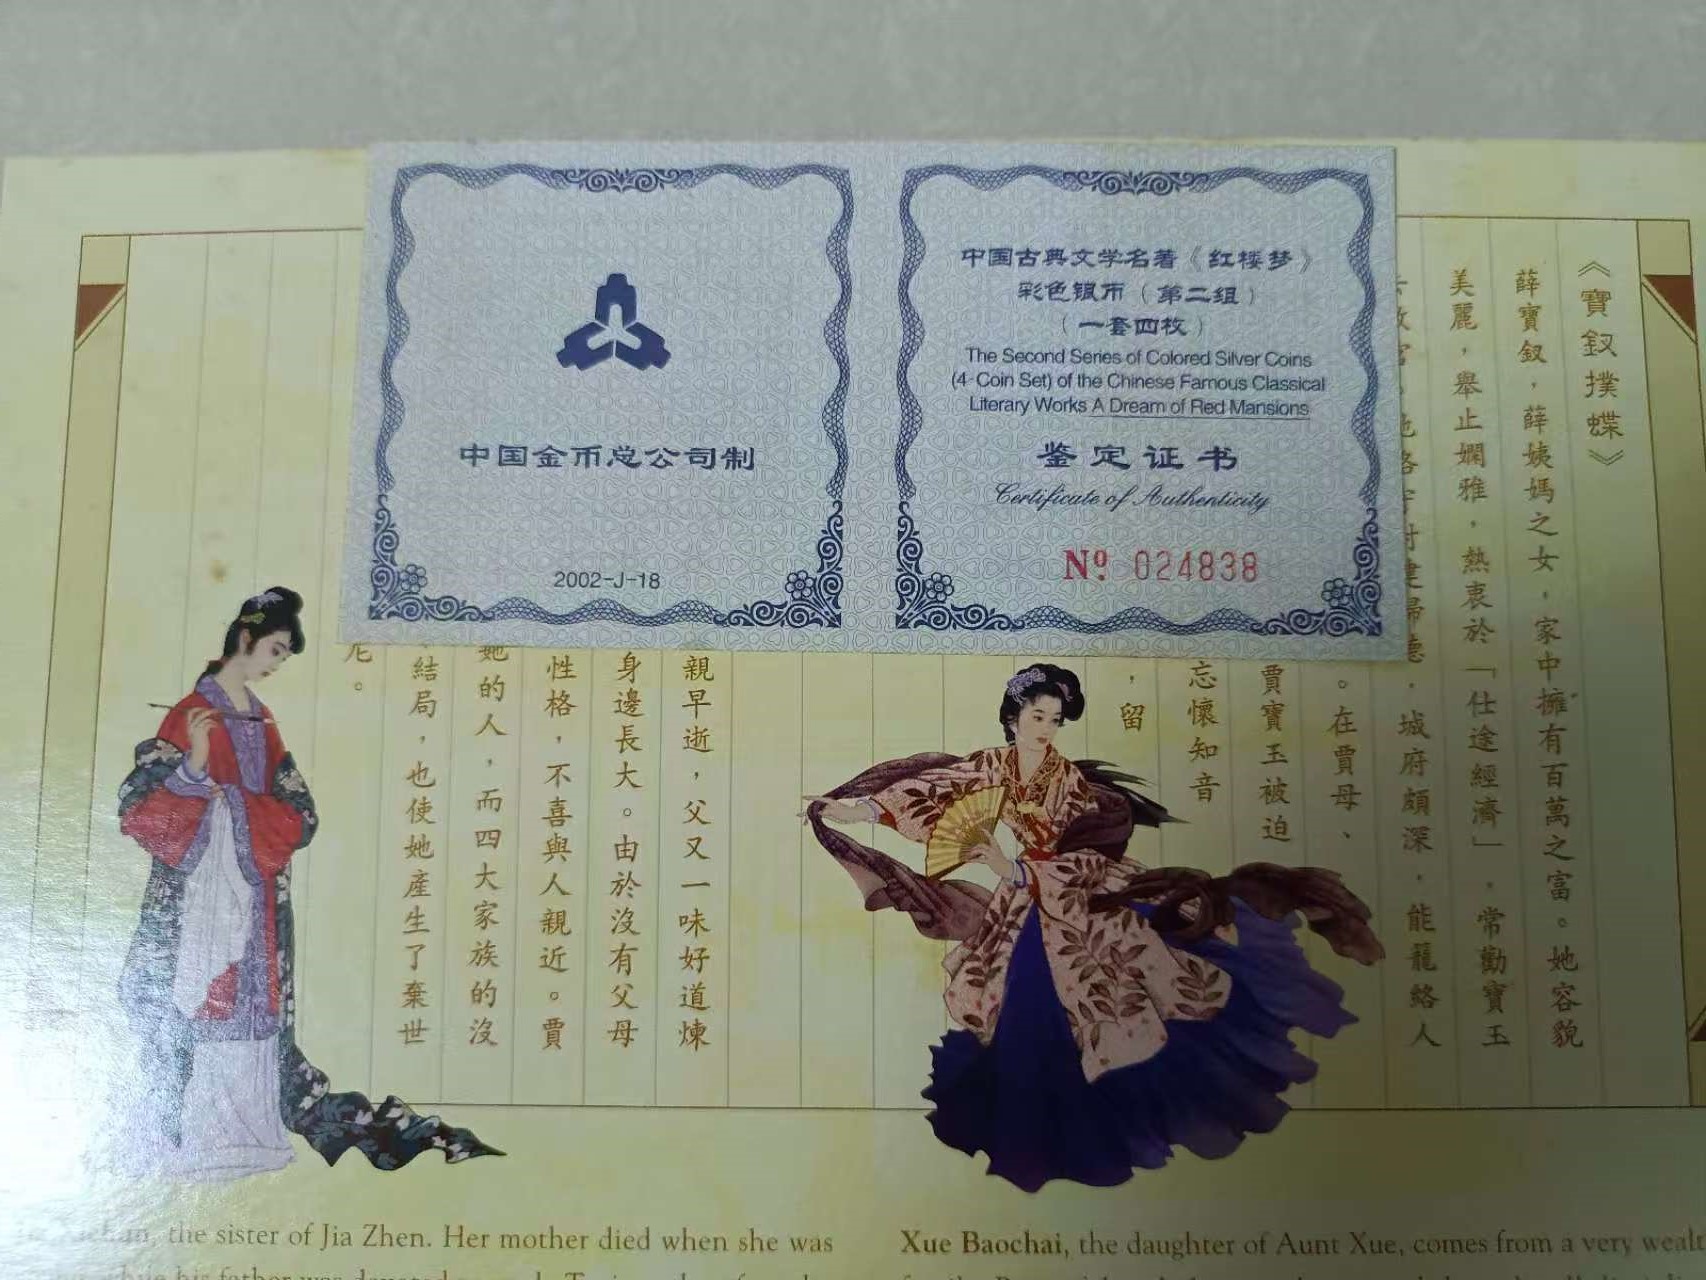 中国金币总公司制
2002-J-18
中国古典文学名著《红楼梦》
彩色银币（第二组）
（一套四枚）
The Second Series of Colored Silver Coins
(4-Coin Set) of the Chinese Famous Classical
Literary Works A Dream of Red Mansions
鉴定证书
Certificate of Authenticity
Nº 024838
《寶釵撲蝶》
薛寶釵，薛姨媽之女，家中擁有百萬之富。她容貌
美麗，舉止嫻雅，熱衷於「仕途經濟」，常勸寶玉
德，城府頗深，能籠絡人
。在賈母、
賈寶玉被迫
忘懷知音
，留
親早逝，父又一味好道煉
身邊長大。由於沒有父母
性格，不喜與人親近。賈
她的人，而四大家族的沒
結局，也使她產生了棄世
尼。
the sister of Jia Zhen. Her mother died when she was
Xue Baochai, the daughter of Aunt Xue, comes from a very wealt